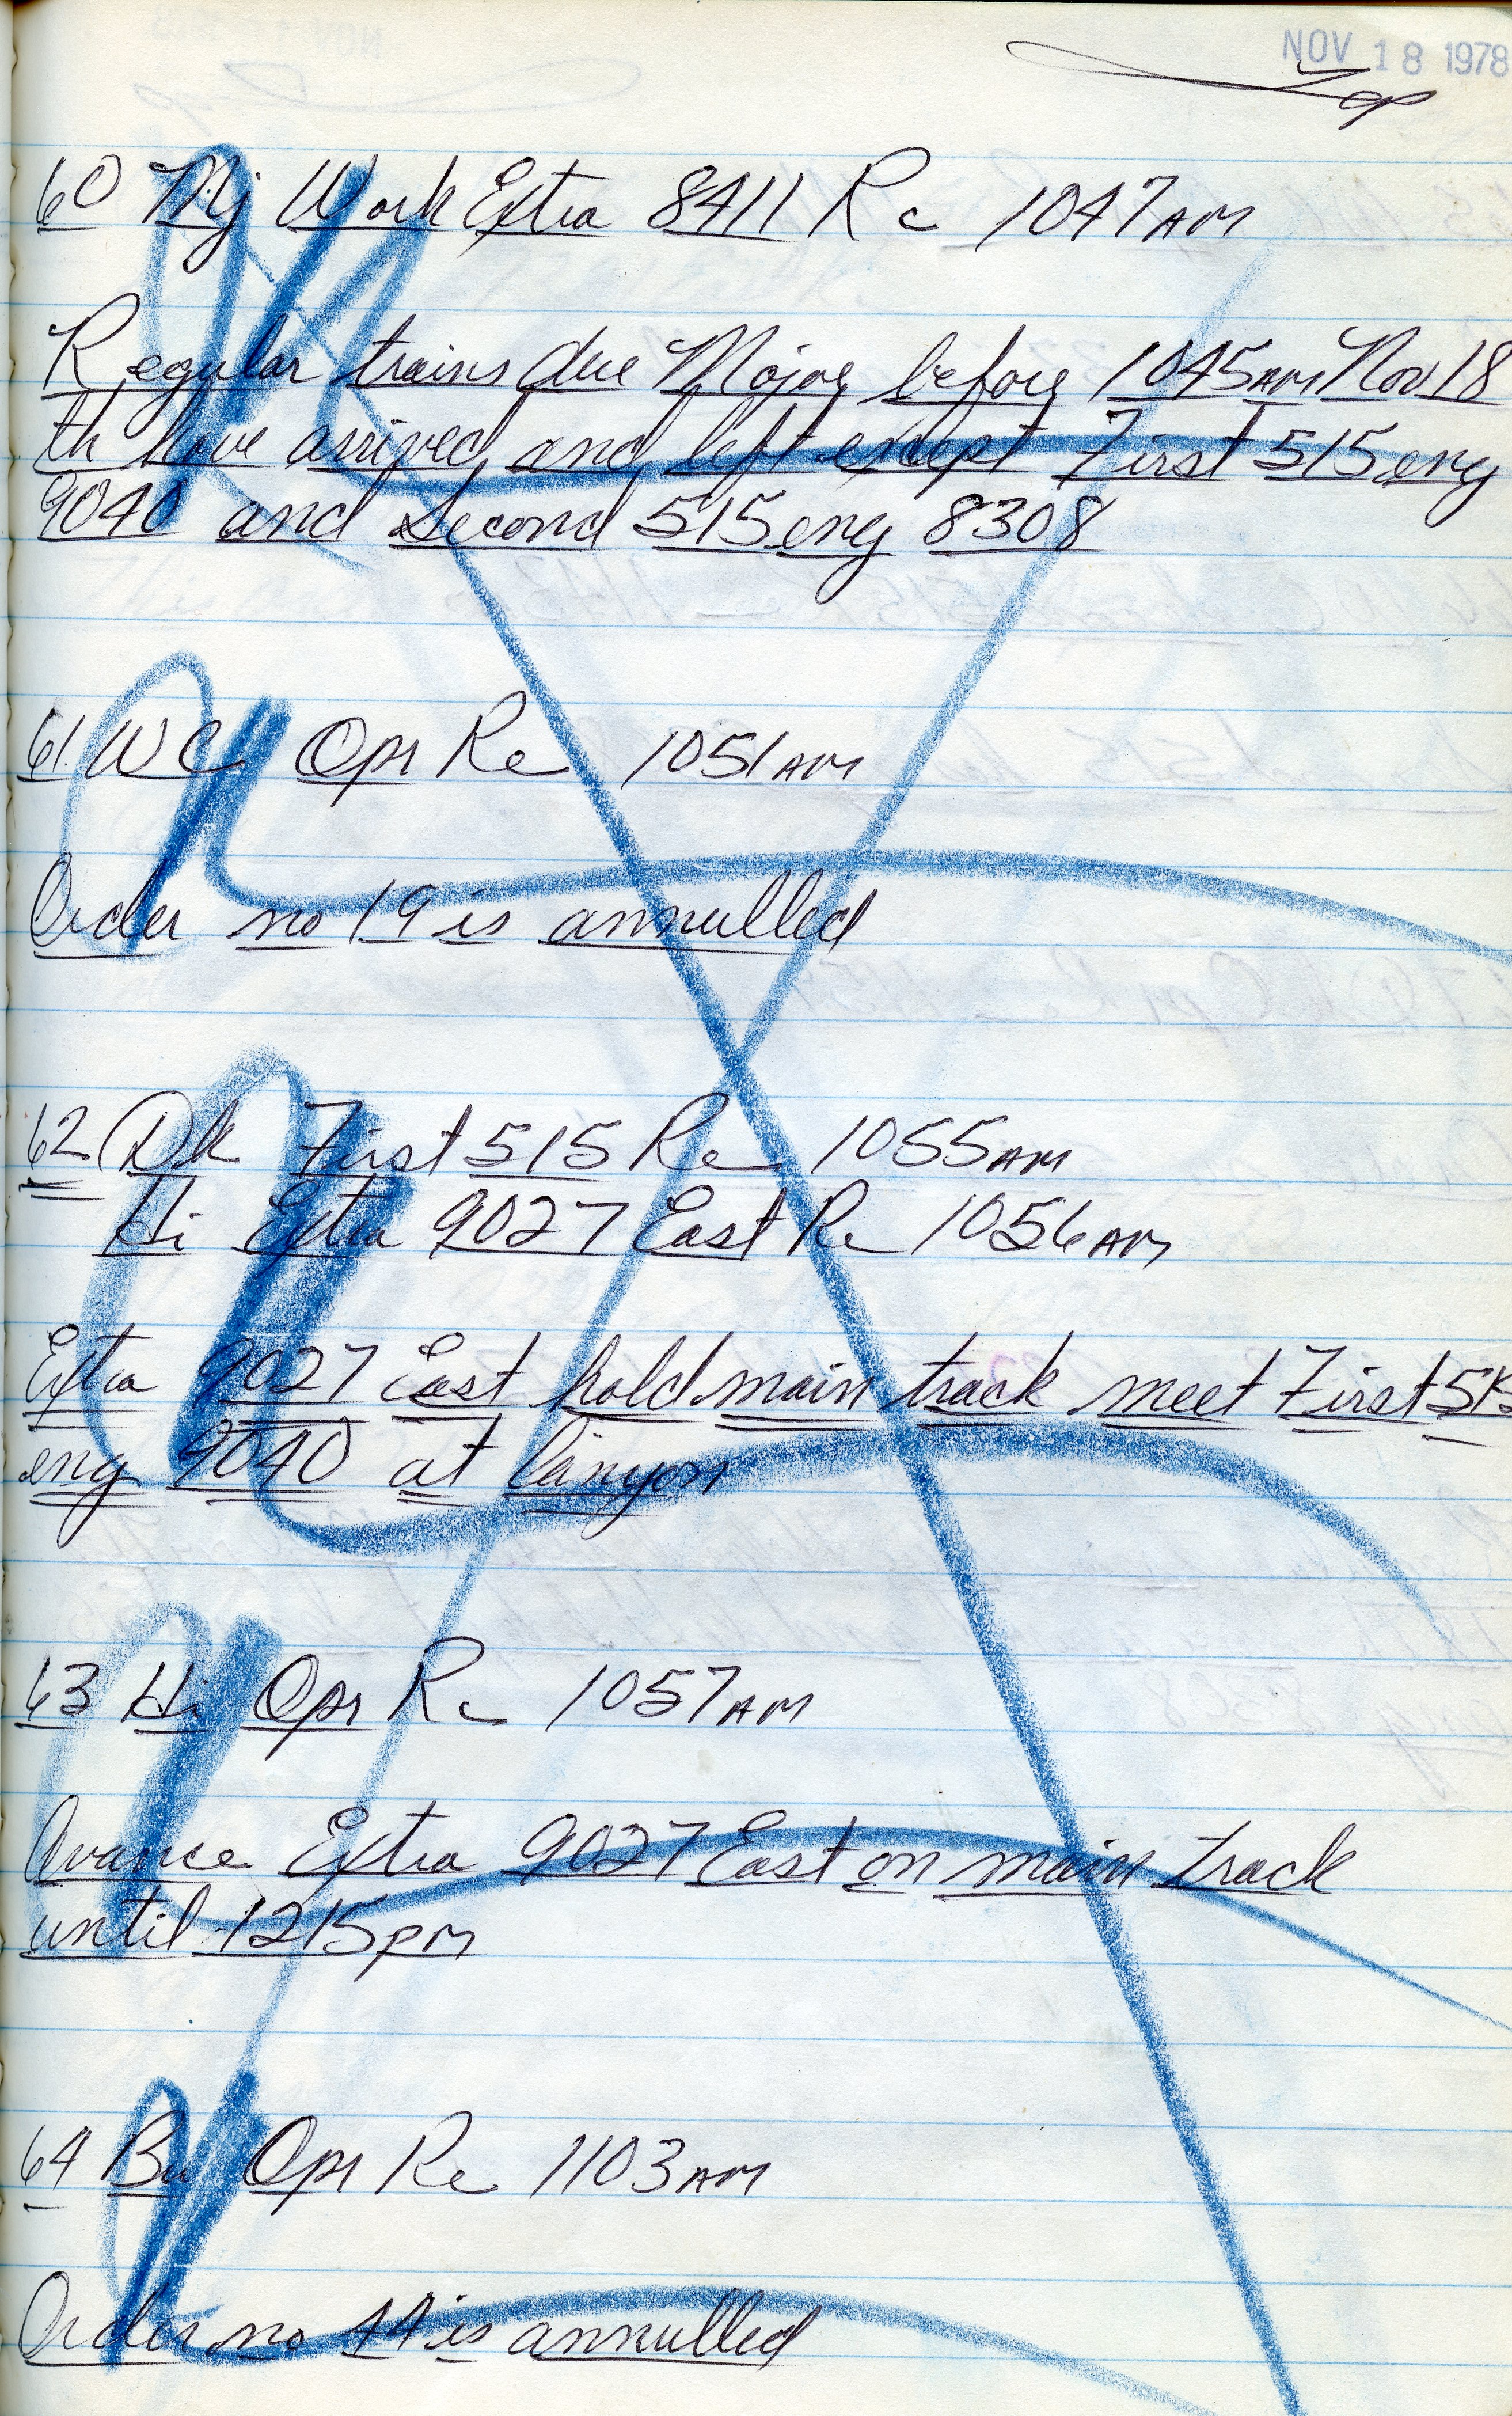 NOV 18 1978
60 Mj Work Extra 8411 Re 1047AM
Regular trains due Major before 1045AM Nov 18
th have arrived and left except First 515 eng
9040 and Second 515 eng 8308
61 WC Opr Re 1051AM
Order no 19 is annulled
62 Dk First 515 Re 1055AM
Hi Extra 9027 East Re 1056AM
Extra 9027 East hold main track meet First 515
eng 9040 at Canyon
63 Hi Opr Re 1057AM
Avance Extra 9027 East on main track
until 1215PM
64 Bu Opr Re 1103AM
Order no 44 is annulled